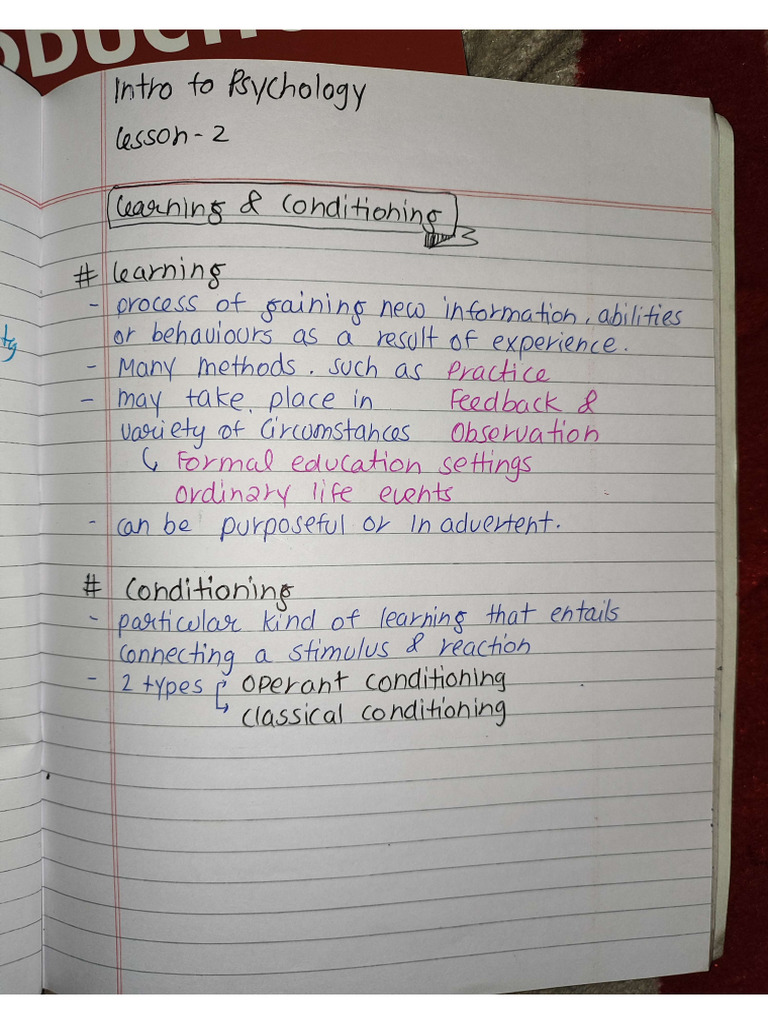 ODUCTIO
Intro to Psychology
Lesson - 2
Learning & Conditioning
# Learning
- process of gaining new information, abilities
or behaviours as a result of experience.
- Many methods. such as Practice
- may take place in Feedback &
variety of Circumstances Observation
↳ Formal education settings
ordinary life events
- can be purposeful or inadvertent.
# Conditioning
- particular kind of learning that entails
connecting a stimulus & reaction
- 2 types → Operant conditioning
↳ Classical conditioning